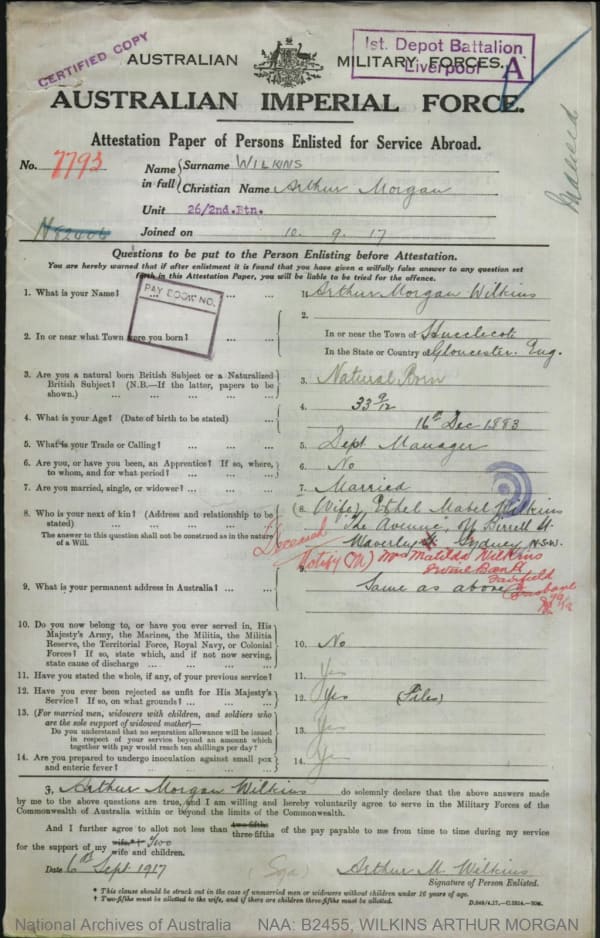 CERTIFIED COPY
AUSTRALIAN MILITARY FORCES.
1st. Depot Battalion
Liverpool A
AUSTRALIAN IMPERIAL FORCE.
Attestation Paper of Persons Enlisted for Service Abroad.
No. 7793
Name in full { Surname WILKINS
Christian Name Arthur Morgan
Unit 26/2nd.Btn.
Joined on 10. 9. 17
Questions to be put to the Person Enlisting before Attestation.
You are hereby warned that if after enlistment it is found that you have given a wilfully false answer to any question set
forth in this Attestation Paper, you will be liable to be tried for the offence.
PAY BOOK NO.
1. What is your Name? ... ... ... 1. Arthur Morgan Wilkins
2. In or near what Town were you born? ... ... 2. In or near the Town of Hucclecote
In the State or Country of Gloucester. Eng.
3. Are you a natural born British Subject or a Naturalized
British Subject? (N.B.—If the latter, papers to be
shown.) ... ... ... ... 3. Natural Born
4. What is your Age? (Date of birth to be stated) ... 4. 33 9/12
16th Dec 1883
5. What is your Trade or Calling? ... ... ... 5. Dept Manager
6. Are you, or have you been, an Apprentice? If so, where,
to whom, and for what period? ... ... ... 6. No
7. Are you married, single, or widower? ... ... ... 7. Married
8. Who is your next of kin? (Address and relationship to be
stated) ... ... ... ... 8. (Wife) Ethel Mabel Wilkins
The Avenue, off Birrell St.
Waverley Sydney N.S.W.
The answer to this question shall not be construed as in the nature
of a Will.
Deceased
Notify (M) Mrs Matilda Wilkins
Fairfield
9. What is your permanent address in Australia? ... ... 9. Same as above
10. Do you now belong to, or have you ever served in, His
Majesty's Army, the Marines, the Militia, the Militia
Reserve, the Territorial Force, Royal Navy, or Colonial
Forces? If so, state which, and if not now serving,
state cause of discharge ... ... ... 10. No
11. Have you stated the whole, if any, of your previous service? 11. Yes
12. Have you ever been rejected as unfit for His Majesty's
Service? If so, on what grounds? ... ... 12. Yes (Piles)
13. (For married men, widowers with children, and soldiers who
are the sole support of widowed mother)—
Do you understand that no separation allowance will be issued
in respect of your service beyond an amount which
together with pay would reach ten shillings per day? 13. Yes
14. Are you prepared to undergo inoculation against small pox
and enteric fever? ... ... ... ... 14. Yes
I, Arthur Morgan Wilkins do solemnly declare that the above answers made
by me to the above questions are true, and I am willing and hereby voluntarily agree to serve in the Military Forces of the
Commonwealth of Australia within or beyond the limits of the Commonwealth.
And I further agree to allot not less than two-fifths three-fifths of the pay payable to me from time to time during my service
for the support of my wife * † Two
wife and children.
Date 6th Sept 1917 (Sgd) Arthur M. Wilkins
Signature of Person Enlisted.
* This clause should be struck out in the case of unmarried men or widowers without children under 16 years of age.
† Two-fifths must be allotted to the wife, and if there are children three-fifths must be allotted.
National Archives of Australia NAA: B2455, WILKINS ARTHUR MORGAN